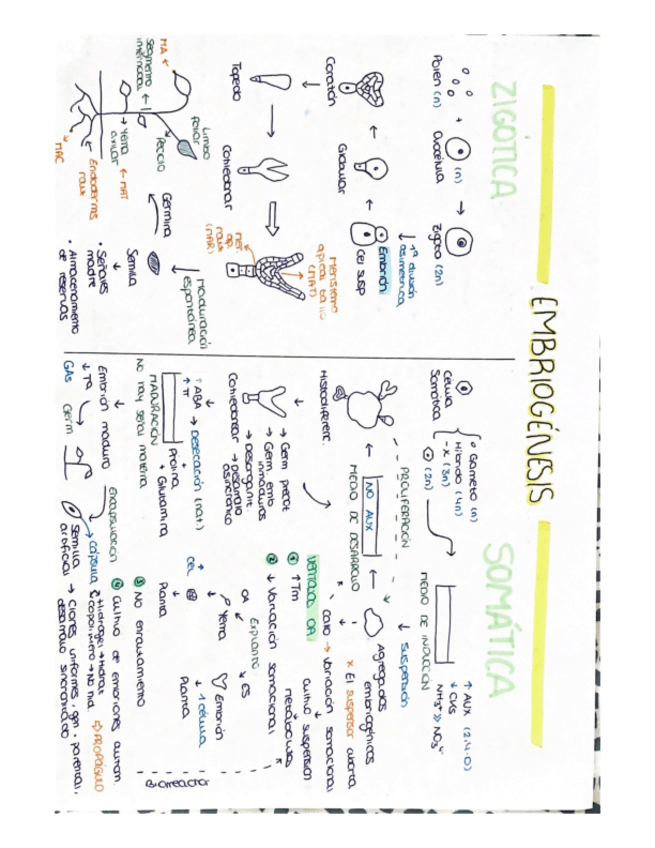 EMBRIOGÉNESIS
ZIGÓTICA
Polen (n) + Ovocélula (n) → Zigoto (2n)
↓ 1ª división asimétrica
Embrión
Cel susp
← Globular
← Corazón
↓
Torpedo → Cotiledonar
Meristemo
apical tallo
(MAT)
Mer.
ap.
raíz
(MAR)
Maduración
espontánea
Semilla
• Señales
madre
• Almacenamiento
de reservas
Germina
Limbo
foliar
Peciolo
MA
Segmento
internodal
→ Yema
axilar ← MAT
Endodermis
raíz
MAC
SOMÁTICA
Célula
Somática
Gameto (n)
Híbrido (4n)
-x (3n)
(2n)
MEDIO DE INDUCCIÓN
↑ AUX (2,4-D)
↓ CKs
NH₄⁺ >> NO₃⁻
↓ Suspensión
PROLIFERACIÓN
Agregados
embriogénicos
x El suspensor aborta
Callo → Variación somaclonal
Cultivo suspensión
metabolitos
NO AUX
MEDIO DE DESARROLLO
Histodiferenc.
Cotiledonar
→ Germ precot
→ Germ. emb
inmaduros
→ Desorganiz.
→ Desarrollo
asincrónico
VENTAJAS
① ↑ Tm
② ↓ Variación somaclonal
Explanto
ES
Yema
Embrión
↓ 1 célula
Cel
Planta
Planta
③ No enraizamiento
④ Cultivo de embriones autom.
Biorreactor
↑ ABA → Desecación (nat.)
Prolina
+
Glutamina
MADURACIÓN
No hay señal materna
Embrión maduro
↓ Tª
GAs
Germ
Encapsulación
Cápsula
Hidrogel → Hidrat
copolímero → No hid
⇨ PROPÁGULO
Semilla
artificial → Clones uniformes, gm. parental,
desarrollo sincronizado